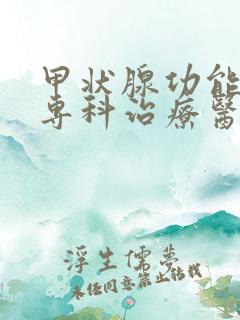 甲状腺功能
專科治療醫
浮生儒夢
未经同意禁止转载